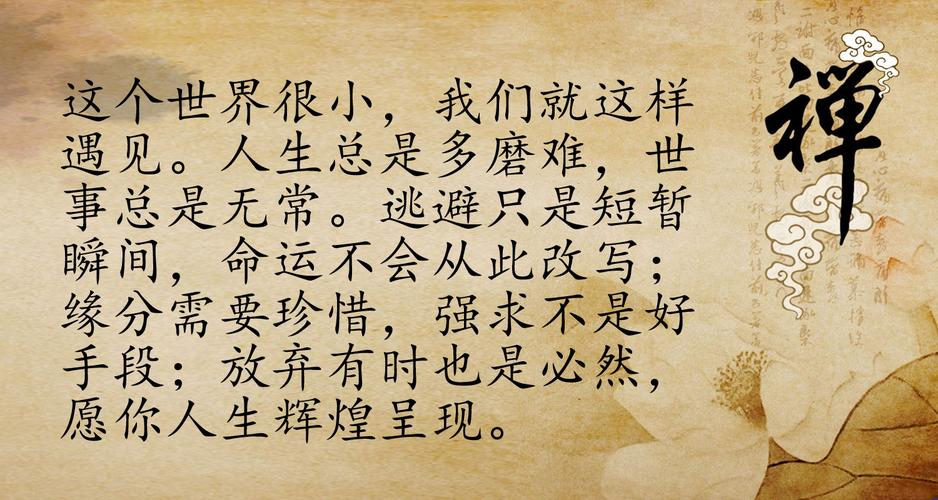 这个世界很小，我们就这样
遇见。人生总是多磨难，世
事总是无常。逃避只是短暂
瞬间，命运不会从此改写；
缘分需要珍惜，强求不是好
手段；放弃有时也是必然，
愿你人生辉煌呈现。
禅